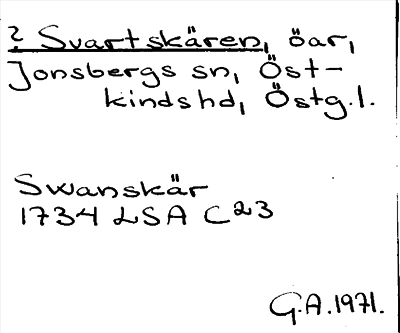 ? Svartskären, öar,
Jonsbergs sn, Öst-
kinds hd, Östg.l.
Swanskär
1734 LSA C23
G.A.1971.